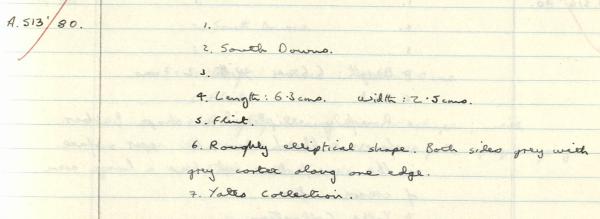 A.513'80.
1.
2. South Downs.
3.
4. Length: 6.3cms. Width: 2.5cms.
5. Flint.
6. Roughly elliptical shape. Both sides grey with
grey cortex along one edge.
7. Yates Collection.